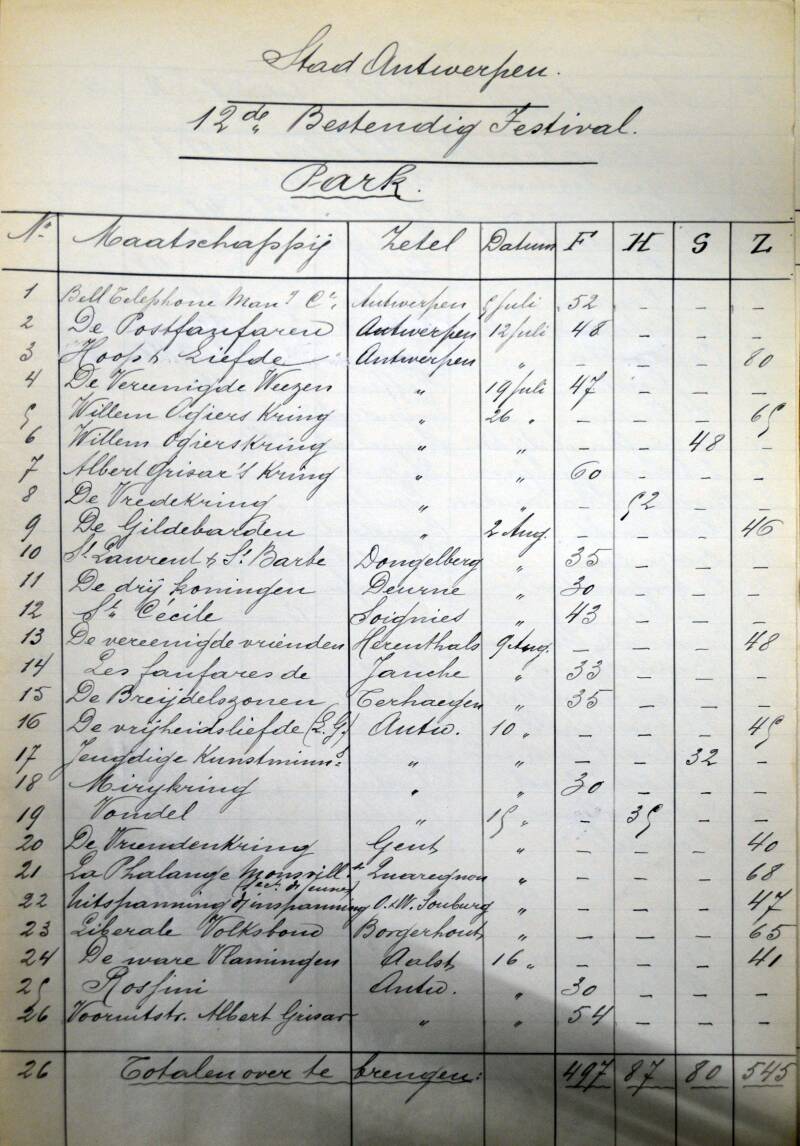 Stad Antwerpen.
12de Bestendig Festival.
Park.
No. Maatschappij Zetel Datum F H S Z
1 Bell Telephone Man.g Co. Antwerpen 5 juli 52 – – –
2 De Postfanfaren Antwerpen 12 juli 48 – – –
3 Hoop & Liefde Antwerpen " – – – 80
4 De Vereenigde Weezen " 19 juli 47 – – –
5 Willem Ogiers Kring " 26 " – – – 65
6 Willem Ogierskring " " – – 48 –
7 Albert Grisar's Kring " " 60 – – –
8 De Vredekring " " – 52 – –
9 De Gildebarden " 2 Aug. – – – 46
10 St Laurent & St Barbe Dongelberg " 35 – – –
11 De drij koningen Deurne " 30 – – –
12 Ste Cécile Soignies " 43 – – –
13 De vereenigde vrienden Herenthals 9 Aug. – – – 48
14 Les fanfares de Jauche " 33 – – –
15 De Breijdelszonen Terhaegen " 35 – – –
16 De vrijheidsliefde (L.G.) Antw. 10 " – – – 45
17 Jeugdige Kunstminns " " – – 32 –
18 Mirykring " " 30 – – –
19 Vondel " 15 " – 35 – –
20 De Vriendenkring Gent " – – – 40
21 La Phalange Quaregnon " – – – 68
22 Uitspanning d/ inspanning O. & W. Souburg " – – – 47
23 Liberale Volksbond Borgerhout " – – – 65
24 De ware Vlamingen Aalst 16 " – – – 41
25 Rossini Antw. " 30 – – –
26 Vooruitstr. Albert Grisar " " 54 – – –
26 Totalen over te brengen: 497 87 80 545